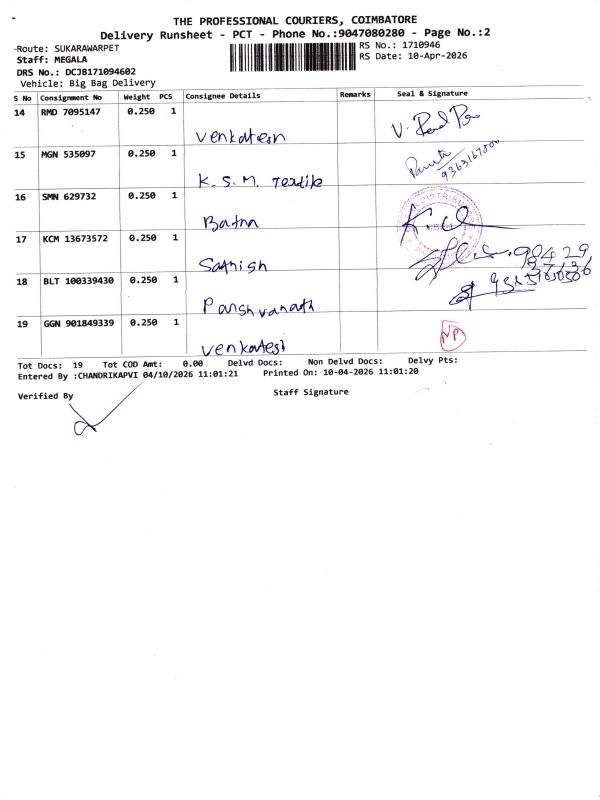 THE PROFESSIONAL COURIERS, COIMBATORE
Delivery Runsheet - PCT - Phone No.:9047080280 - Page No.:2
Route: SUKARAWARPET
RS No.: 1710946
Staff: MEGALA
RS Date: 10-Apr-2026
DRS No.: DCJB171094602
Vehicle: Big Bag Delivery
S No Consignment No Weight PCS Consignee Details Remarks Seal & Signature
14 RMD 7095147 0.250 1 Venkatesh
15 MGN 535097 0.250 1 K. S. M. Textile
16 SMN 629732 0.250 1
17 KCM 13673572 0.250 1 Sathish
18 BLT 100339430 0.250 1 Parshvanath
19 GGN 901849339 0.250 1 Venkatesh NP
Tot Docs: 19 Tot COD Amt: 0.00 Delvd Docs: Non Delvd Docs: Delvy Pts:
Entered By :CHANDRIKAPVI 04/10/2026 11:01:21 Printed On: 10-04-2026 11:01:20
Verified By Staff Signature